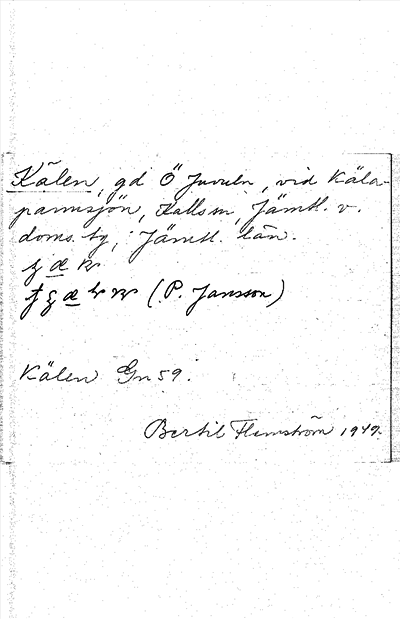 Kälen, gd Ö Juveln, vid Käla-
pannsjön, Kallsm, Jämtl. v.
doms. tg, Jämtl. län.
(P. Jansson)
Kälen Gm 59.
Bertil Flemström 1949.